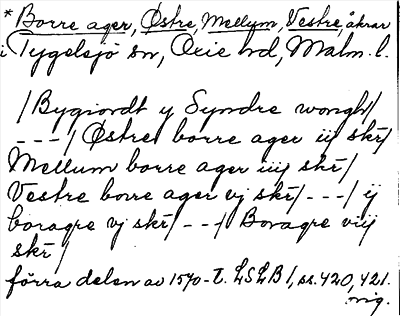 * Borre ager, Østre, Mellum, Vestre, åkrar
i Tygelsjö sn, Oxie hd, Malm. l.
/Bygiordt y Syndre wongh/
- - -/ Østre borre ager iij skr/
Mellum borre ager iiij skr/
Vestre borre ager vj skr/ - - -/ ij
boragre vj skr/ - - -/ Boragre viij
skr/
förra delen av 1570-t. LSLB 1, ss. 420, 421.
orig.